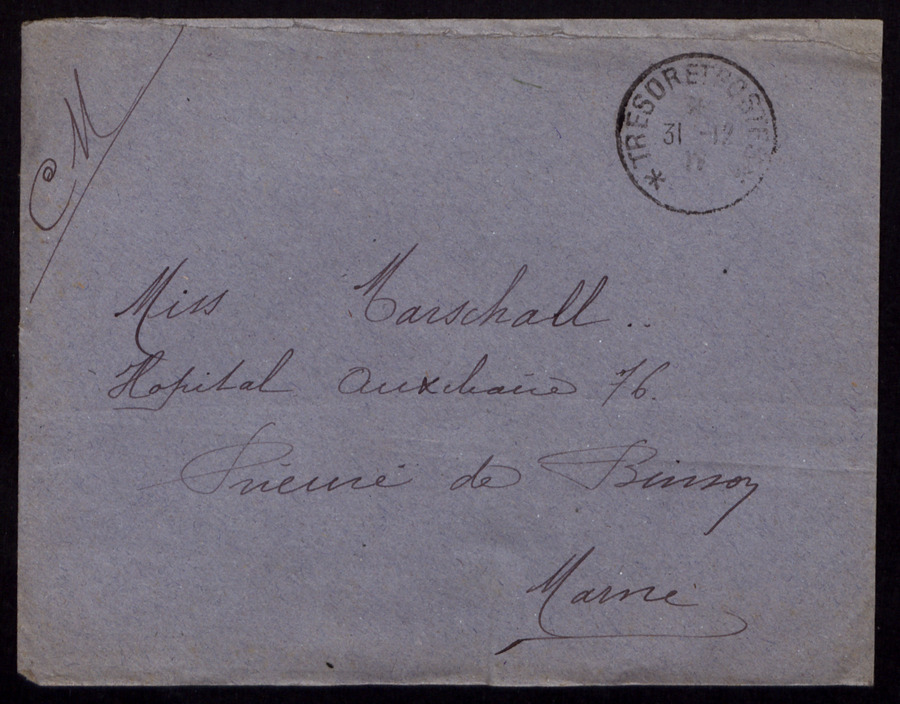 CM
* TRESOR ET POSTES *
*
31 -12
Miss Marschall..
Hopital Auxiliaire 76.
Prieuré de Binson
Marne